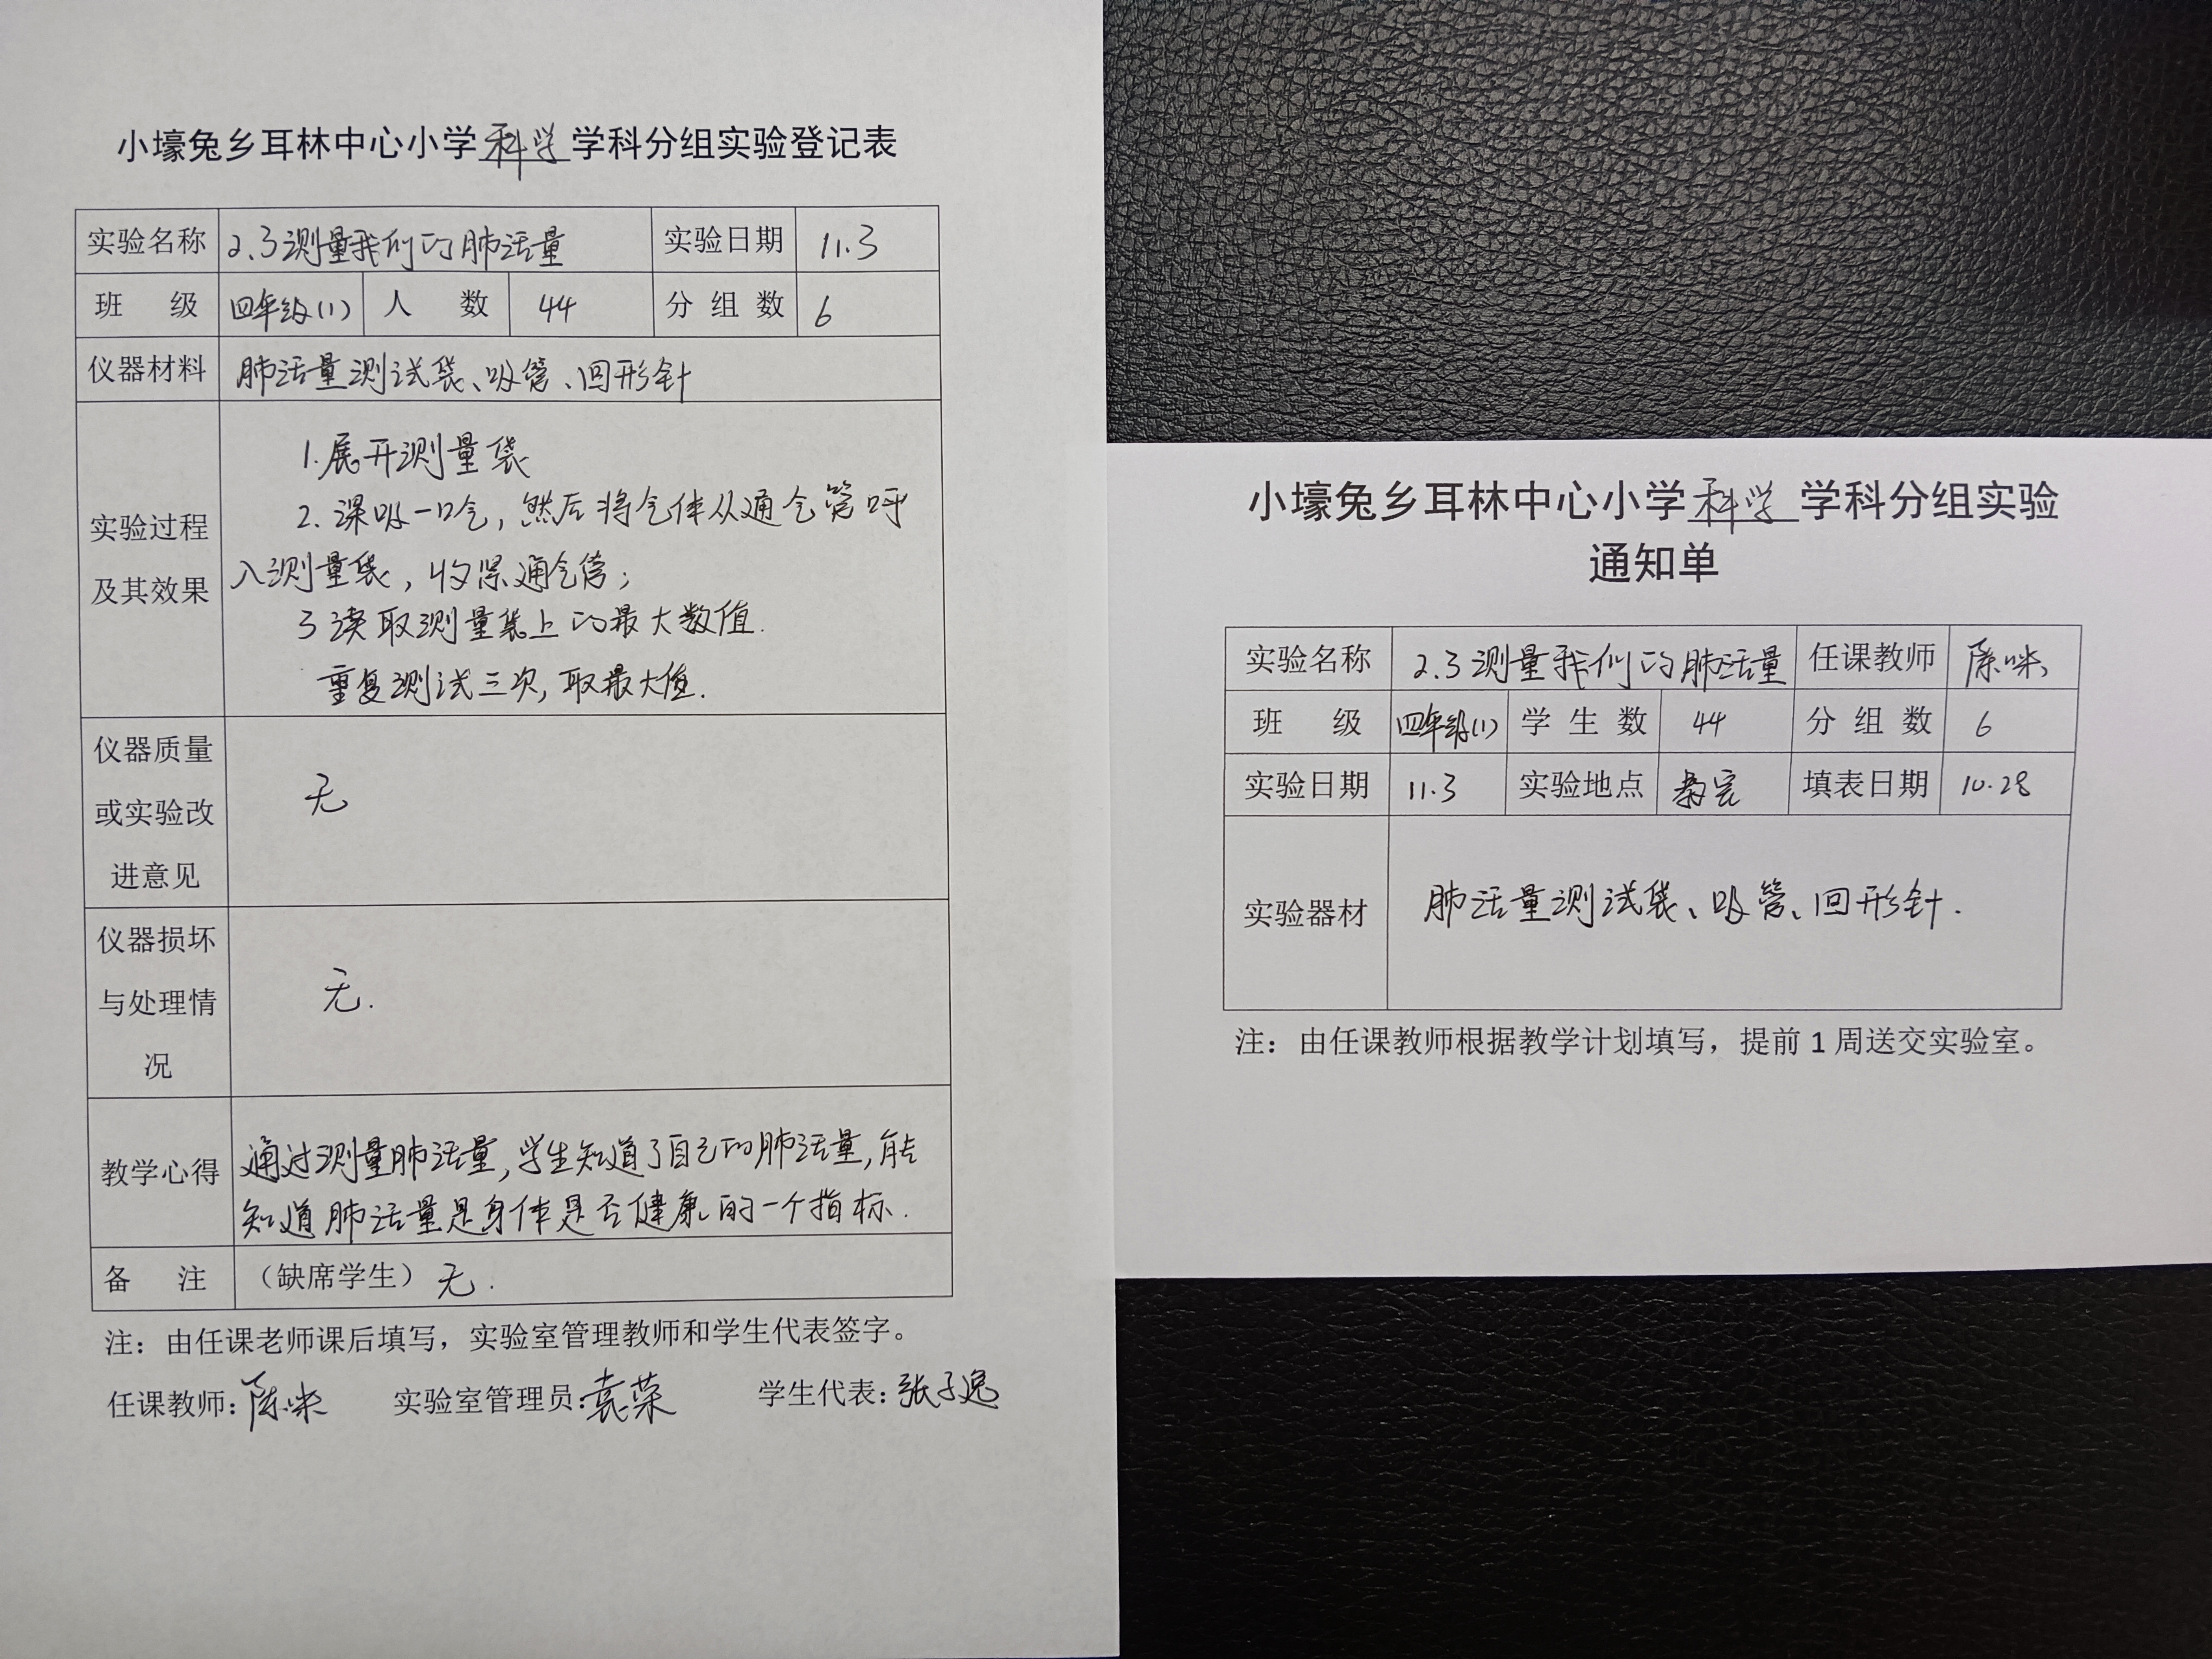 小壕兔乡耳林中心小学科学学科分组实验登记表
实验名称 2.3测量我们的肺活量 实验日期 11.3
班 级 四年级(1) 人 数 44 分组数 6
仪器材料 肺活量测试袋、吸管、回形针
实验过程
及其效果
1.展开测量袋
2.深吸一口气,然后将气体从通气管呼
入测量袋,收紧通气管;
3读取测量袋上的最大数值.
重复测试三次,取最大值.
仪器质量
或实验改
进意见
无
仪器损坏
与处理情
况
无.
教学心得
通过测量肺活量,学生知道了自己的肺活量,能
知道肺活量是身体是否健康的一个指标.
备 注 (缺席学生)无.
注:由任课老师课后填写,实验室管理教师和学生代表签字。
任课教师: 实验室管理员:袁荣 学生代表:张子逸
小壕兔乡耳林中心小学科学学科分组实验
通知单
实验名称 2.3测量我们的肺活量 任课教师
班 级 四年级(1) 学生数 44 分组数 6
实验日期 11.3 实验地点 教室 填表日期 10.28
实验器材 肺活量测试袋、吸管、回形针.
注:由任课教师根据教学计划填写,提前1周送交实验室。